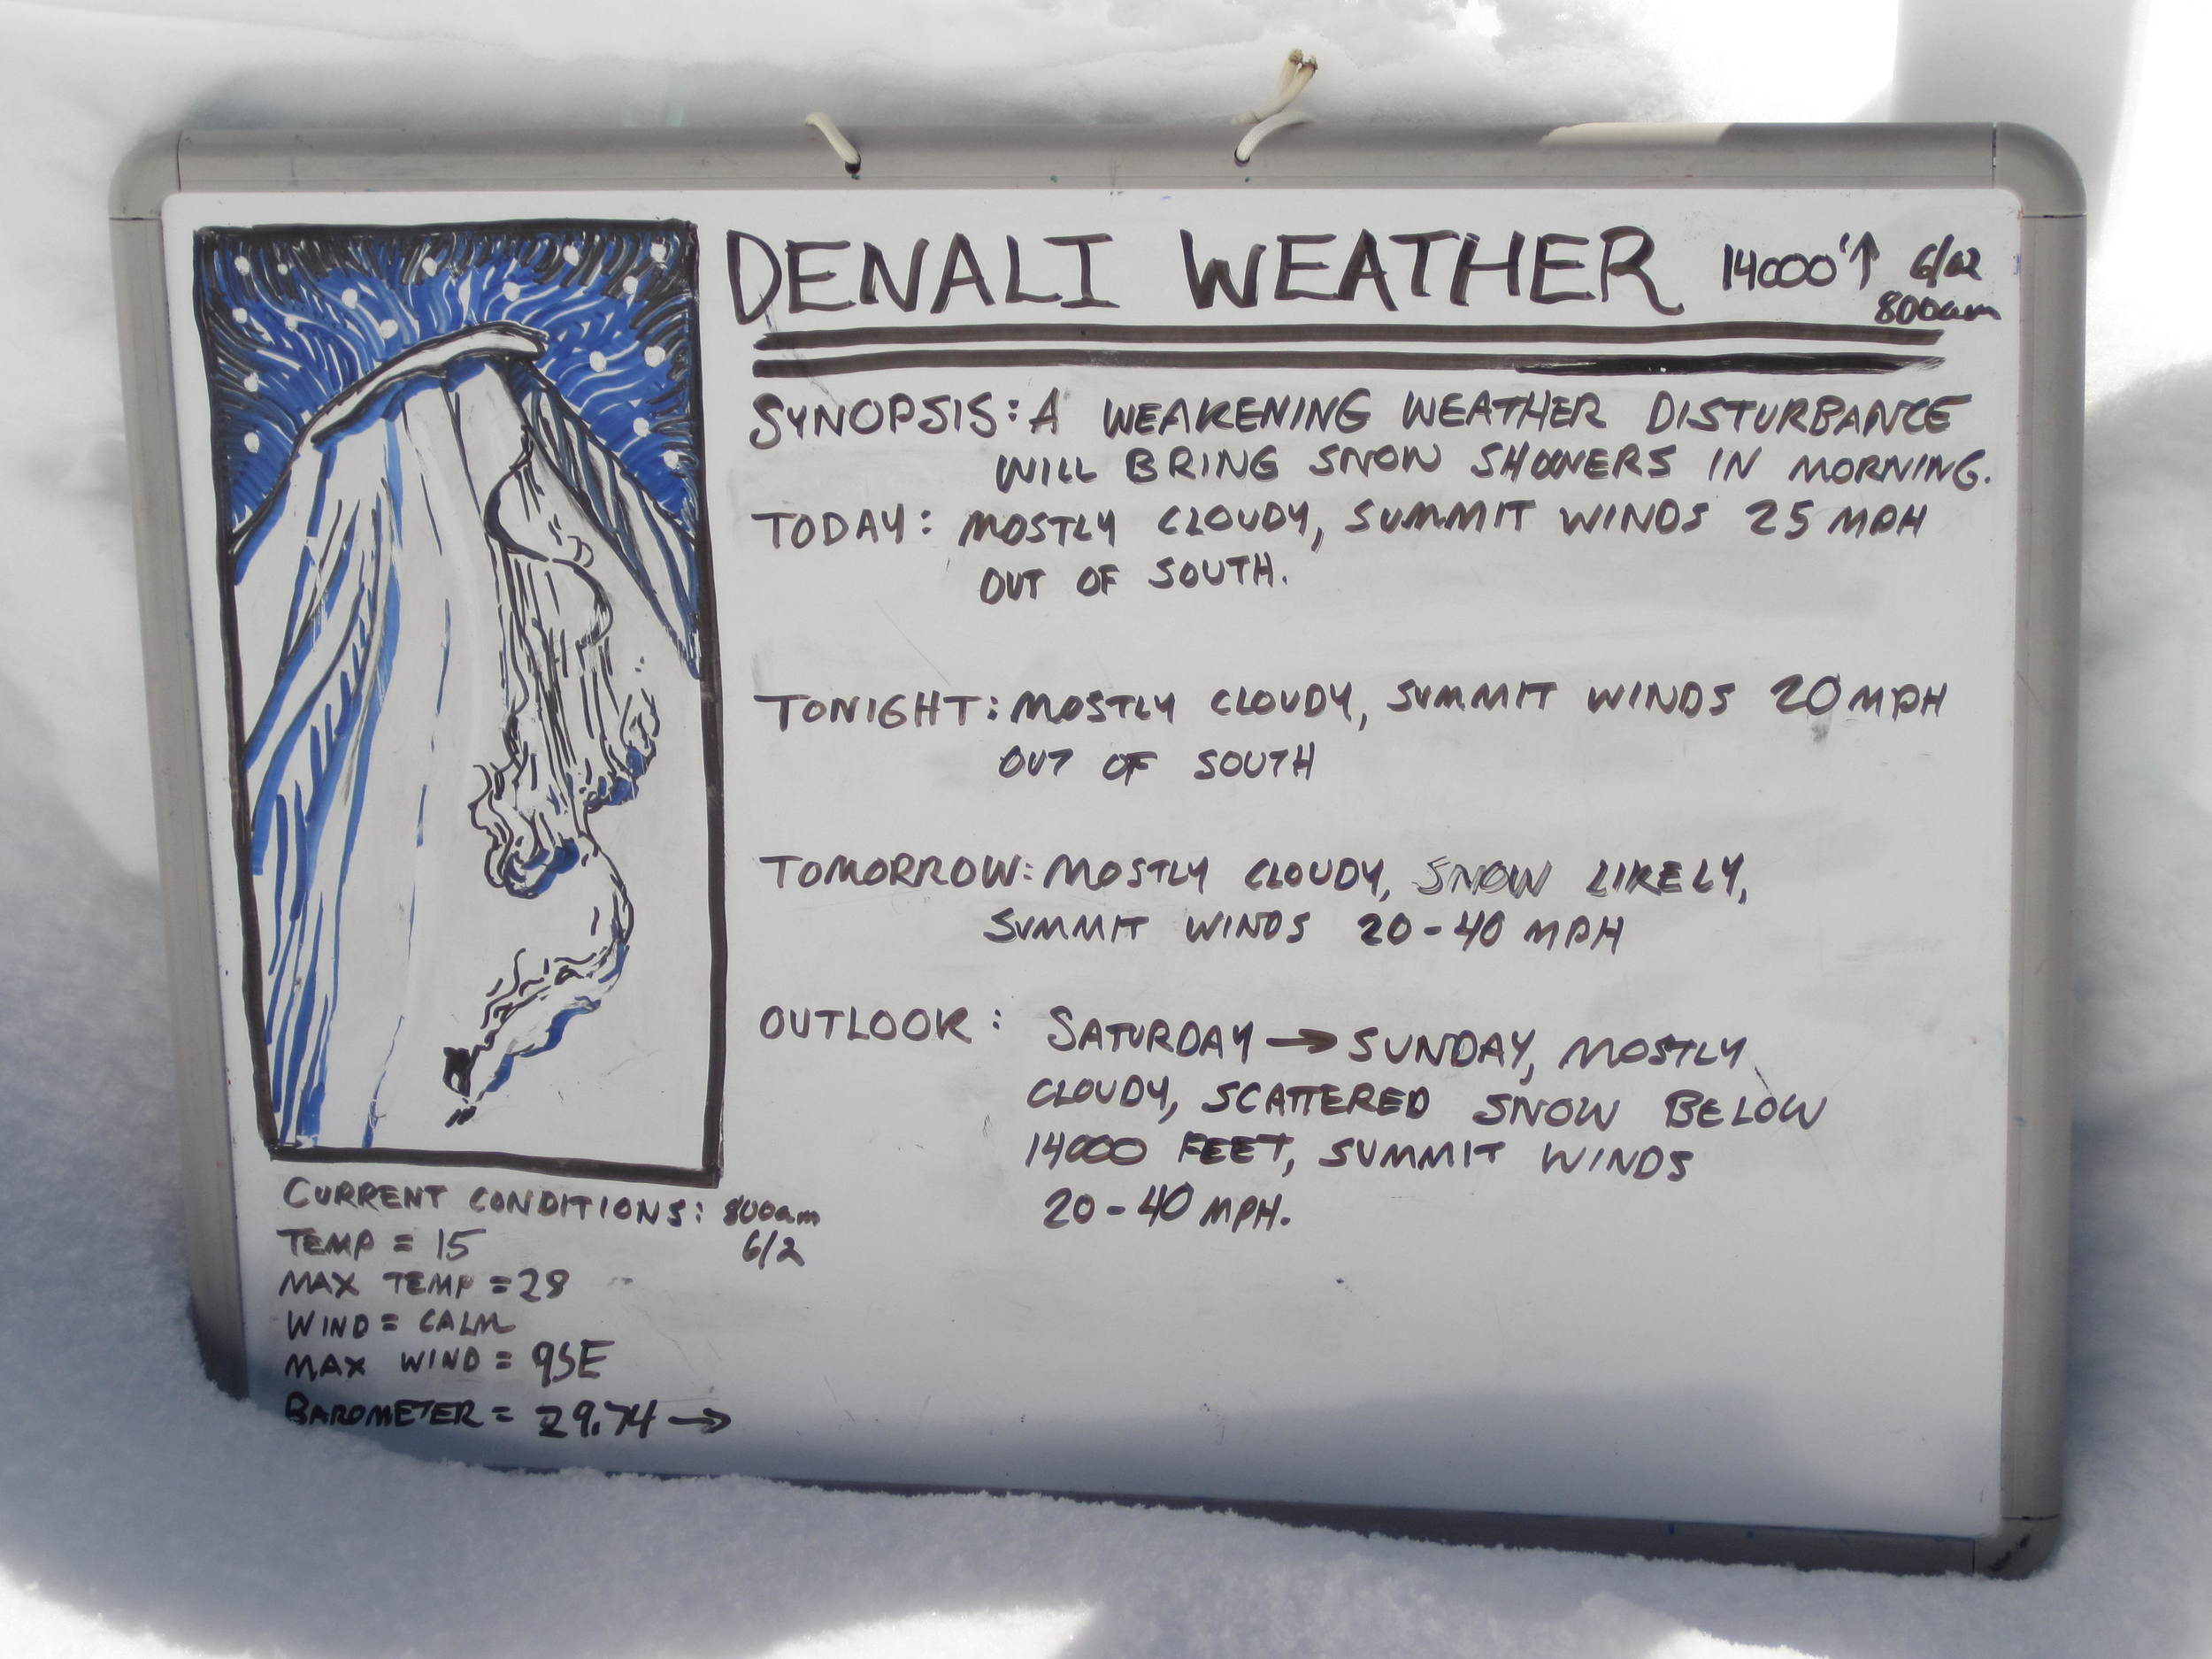 DENALI WEATHER 14000'↑ 6/02
800am
SYNOPSIS: A WEAKENING WEATHER DISTURBANCE
WILL BRING SNOW SHOWERS IN MORNING.
TODAY: MOSTLY CLOUDY, SUMMIT WINDS 25 MPH
OUT OF SOUTH.
TONIGHT: MOSTLY CLOUDY, SUMMIT WINDS 20 MPH
OUT OF SOUTH
TOMORROW: MOSTLY CLOUDY, SNOW LIKELY,
SUMMIT WINDS 20-40 MPH
OUTLOOK: SATURDAY → SUNDAY, MOSTLY
CLOUDY, SCATTERED SNOW BELOW
14000 FEET, SUMMIT WINDS
20-40 MPH.
CURRENT CONDITIONS: 800am
6/2
TEMP = 15
MAX TEMP = 28
WIND = CALM
MAX WIND = 9SE
BAROMETER = 29.74 →